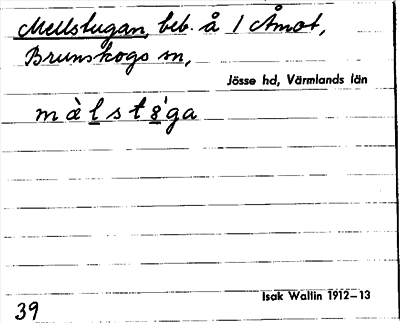 Mellstugan, beb. å 1 Åmot,
Brunskogs sn,
Jösse hd, Värmlands län
màlst8̀ga
Isak Wallin 1912–13
39